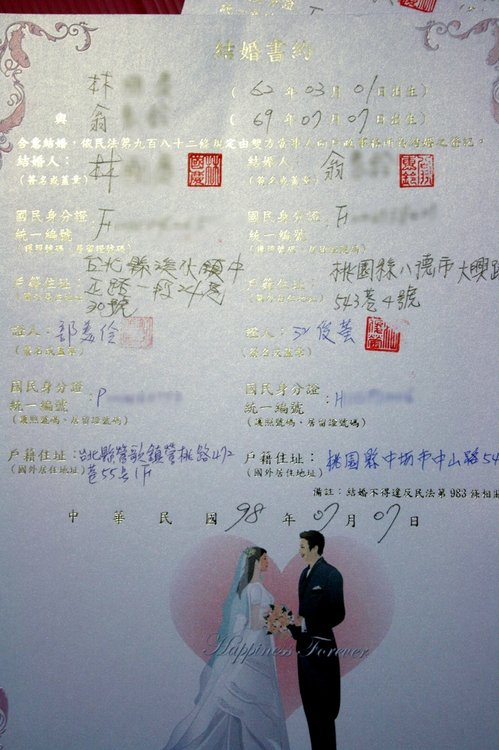 結婚書約
林 ( 62 年 03 月 01 日出生 )
與
翁 ( 69 年 07 月 07 日出生 )
合意結婚，依民法第九百八十二條規定由雙方當事人向戶政事務所為結婚之登記。
結婚人： 林 結婚人： 翁
(簽名或蓋章) (簽名或蓋章)
國民身分證 國民身分證
統一編號 : F 統一編號 : F
(護照號碼、居留證號碼) (護照號碼、居留證號碼)
台北縣淡水鎮中 桃園縣八德市大興路
戶籍住址: 正路一段24巷 戶籍住址:
(國外居住地址) 30號 (國外居住地址) 543巷4號
證人: 證人: 江俊螢
(簽名或蓋章) (簽名或蓋章)
國民身分證 國民身分證
統一編號 : P 統一編號 : H
(護照號碼、居留證號碼) (護照號碼、居留證號碼)
戶籍住址: 台北縣鶯歌鎮鶯桃路472 戶籍住址: 桃園縣中壢市中山路54
(國外居住地址) 巷55 1F (國外居住地址)
備註：結婚不得違反民法第 983 條相
中 華 民 國 98 年 07 月 07 日
Happiness Forever